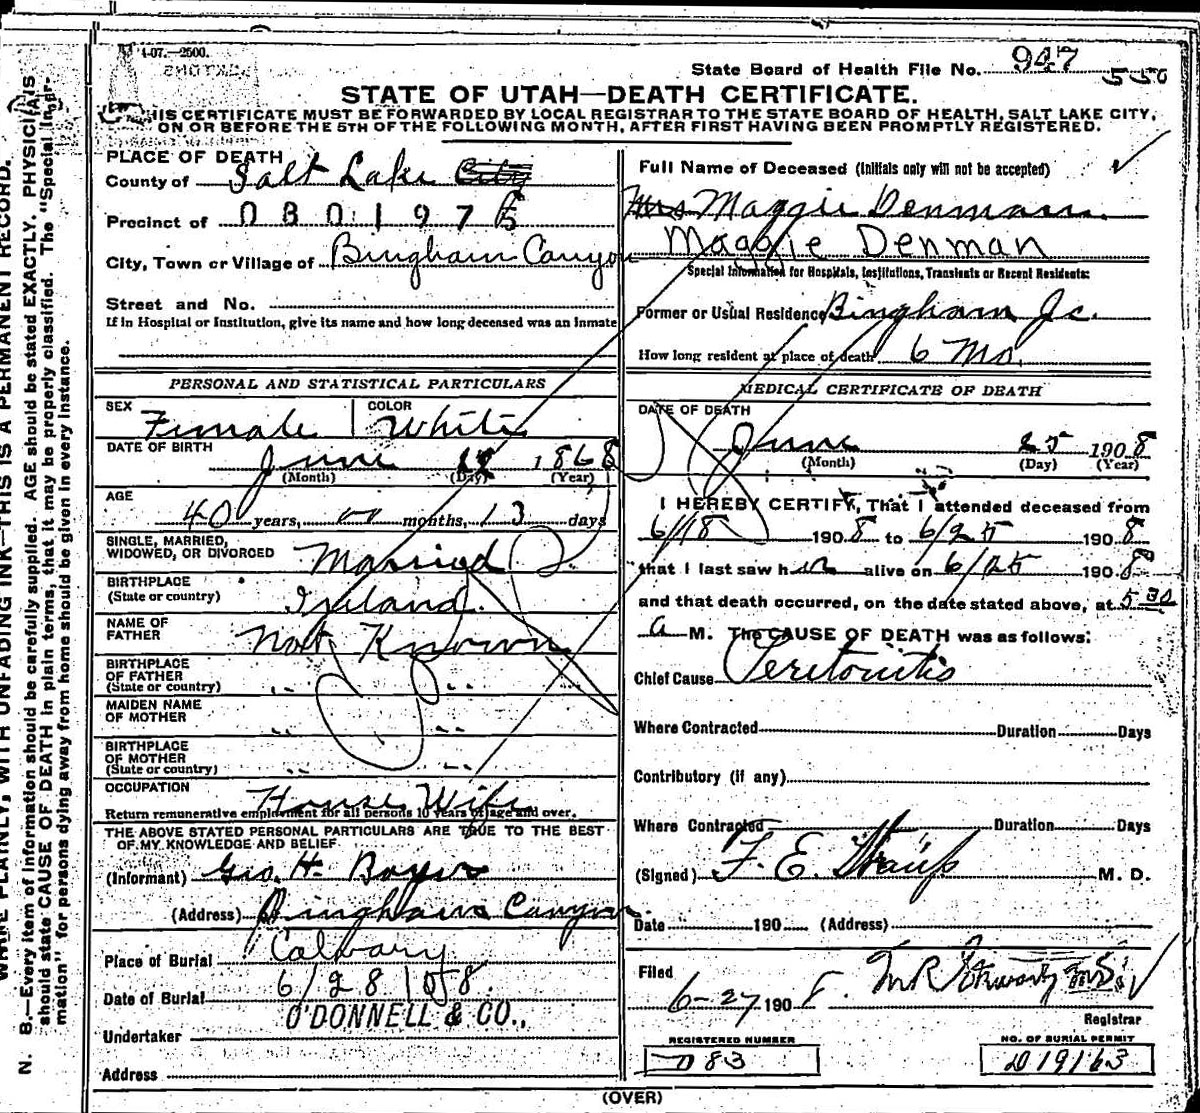 4-07.—2500.
State Board of Health File No. 947
550
STATE OF UTAH—DEATH CERTIFICATE.
HIS CERTIFICATE MUST BE FORWARDED BY LOCAL REGISTRAR TO THE STATE BOARD OF HEALTH, SALT LAKE CITY,
ON OR BEFORE THE 5TH OF THE FOLLOWING MONTH, AFTER FIRST HAVING BEEN PROMPTLY REGISTERED.
PLACE OF DEATH
County of Salt Lake City
Precinct of 0 8 0 1 9 7
City, Town or Village of Bingham Canyon
Street and No.
If in Hospital or Institution, give its name and how long deceased was an inmate
PERSONAL AND STATISTICAL PARTICULARS
SEX Female
COLOR White
DATE OF BIRTH June 1868
(Month) (Day) (Year)
AGE
40 years, months, 13 days
SINGLE, MARRIED,
WIDOWED, OR DIVORCED Married
BIRTHPLACE
(State or country) Ireland.
NAME OF
FATHER Not Known
BIRTHPLACE
OF FATHER
(State or country) " "
MAIDEN NAME
OF MOTHER " "
BIRTHPLACE
OF MOTHER
(State or country) " "
OCCUPATION House Wife
Return remunerative employment for all persons 10 years of age and over.
THE ABOVE STATED PERSONAL PARTICULARS ARE TRUE TO THE BEST
OF MY KNOWLEDGE AND BELIEF.
(Informant) Geo. H.
(Address) Bingham Canyon
Place of Burial Calvary
Date of Burial 6/28/08.
O'DONNELL & CO.,
Undertaker
Address
Full Name of Deceased (Initials only will not be accepted)
Mrs Maggie Denman
Maggie Denman
Special Information for Hospitals, Institutions, Transients or Recent Residents:
Former or Usual Residence Bingham Jc.
How long resident at place of death 6 Mo.
MEDICAL CERTIFICATE OF DEATH
DATE OF DEATH
June 25 1908
(Month) (Day) (Year)
I HEREBY CERTIFY, That I attended deceased from
6/18 1908 to 6/25 1908
that I last saw her alive on 6/25 1908
and that death occurred, on the date stated above, at 5 30
a M. The CAUSE OF DEATH was as follows:
Chief Cause Peritonitis
Where Contracted Duration Days
Contributory (if any)
Where Contracted Duration Days
(Signed) F. E. Straup M. D.
Date 190 (Address)
Filed
6-27 190 8. M R
Registrar
REGISTERED NUMBER
D 83
NO. OF BURIAL PERMIT
D19163
(OVER)
N. B.—Every item of information should be carefully supplied. AGE should be stated EXACTLY. PHYSICIANS
should state CAUSE OF DEATH in plain terms, that it may be properly classified. The "Special Infor-
mation" for persons dying away from home should be given in every instance.
PLAINLY, WITH UNFADING INK—THIS IS A PERMANENT RECORD.